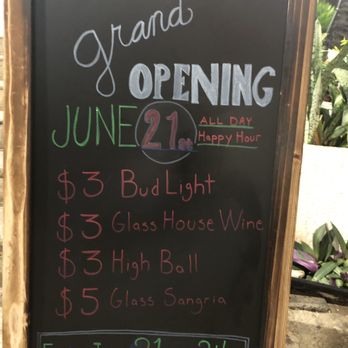 grand
OPENING
JUNE 21st ALL DAY
Happy Hour
$3 Bud Light
$3 Glass House Wine
$3 High Ball
$5 Glass Sangria